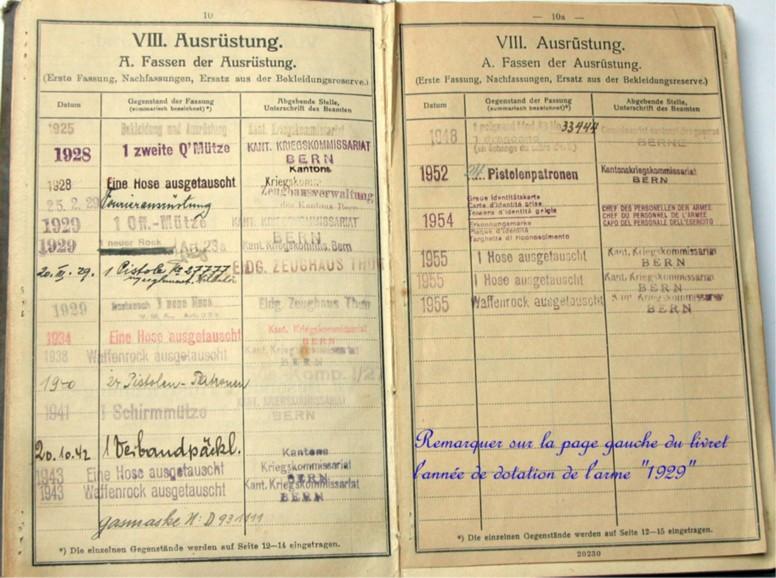 10
VIII. Ausrüstung.
A. Fassen der Ausrüstung.
(Erste Fassung, Nachfassungen, Ersatz aus der Bekleidungsreserve.)
Datum
Gegenstand der Fassung
(summarisch bezeichnet)*)
Abgebende Stelle,
Unterschrift des Beamten
1925 Bekleidung und Ausrüstung Kant. Kriegskommissariat
1928 1 zweite Q'Mütze KANT. KRIEGSKOMMISSARIAT
BERN
1928 Eine Hose ausgetauscht Kantons
Kriegskomm
25. 2. 29 Fourierausrüstung Zeughausverwaltung
des Kantons Bern
1929 1 Off.-Mütze KANT. KRIEGSKOMMISSARIAT
BERN
1929 1 neuer Rock Kant. Kriegskommiss. Bern
20. III. 29. 1 Pistole No 27777 EIDG. ZEUGHAUS THUN
1929 1 neue Hose Eidg. Zeughaus Thun
1934 Eine Hose ausgetauscht Kant. Kriegskommissariat
BERN
1938 Waffenrock ausgetauscht Kant. Kriegskommissariat
BERN
1940 24 Pistolen-Patronen Komp. I/2
1941 1 Schirmmütze KANT. KRIEGSKOMMISSARIAT
BERN
20.10.42 1 Verbandpäckl.
1943 Eine Hose ausgetauscht Kantons
Kriegskommissariat
BERN
1943 Waffenrock ausgetauscht Kant. Kriegskommissariat
BERN
gasmaske N: D 931111
*) Die einzelnen Gegenstände werden auf Seite 12—14 eingetragen.
— 10a —
VIII. Ausrüstung.
A. Fassen der Ausrüstung.
(Erste Fassung, Nachfassungen, Ersatz aus der Bekleidungsreserve.)
Datum
Gegenstand der Fassung
(summarisch bezeichnet)*)
Abgebende Stelle,
Unterschrift des Beamten
1948 33444
BERNE
1952 24 Pistolenpatronen Kantonskriegskommissariat
BERN
1954 Graue Identitätskarte
Carte d'identité grise
Tessera d'identità grigia
Erkennungsmarke
Plaque d'identité
Targhetta di riconoscimento
CHEF DES PERSONELLEN DER ARMEE
CHEF DU PERSONNEL DE L'ARMÉE
CAPO DEL PERSONALE DELL'ESERCITO
1955 1 Hose ausgetauscht Kant. Kriegskommissariat
BERN
1955 1 Hose ausgetauscht Kant. Kriegskommissariat
BERN
1955 Waffenrock ausgetauscht Kant. Kriegskommissariat
BERN
Remarquer sur la page gauche du livret
l'année de dotation de l'arme "1929"
*) Die einzelnen Gegenstände werden auf Seite 12—15 eingetragen.
20230